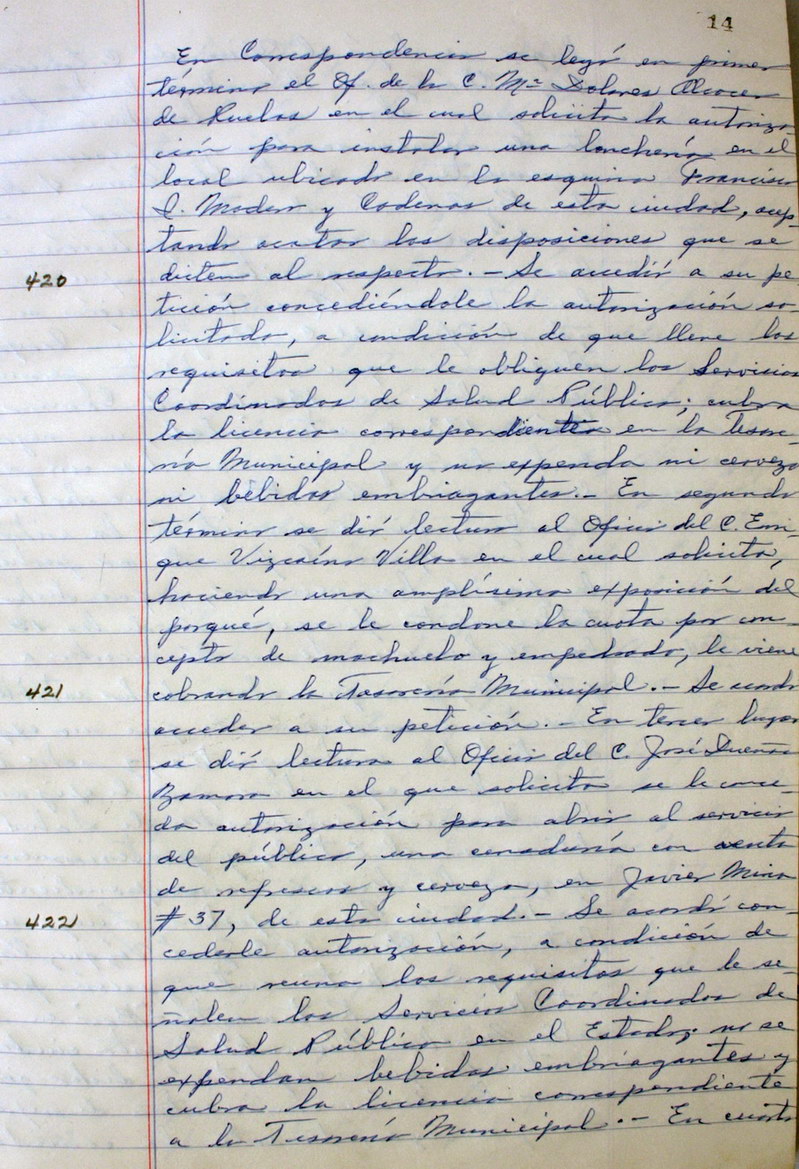 14
En Correspondencia se leyó en primer
término el Of. de la C. Ma Dolores Alcocer
de Ruelas en el cual solicita la autoriza-
ción para instalar una lonchería en el
local ubicado en la esquina Francisco
I. Madero y Cadenas de esta ciudad, acep-
tando acatar las disposiciones que se
420 dicten al respecto. - Se accedió a su pe-
tición concediéndole la autorización so-
licitada, a condición de que llene los
requisitos que le obliguen los Servicios
Coordinados de Salud Pública; cubra
la licencia correspondiente en la Tesore-
ría Municipal y no expenda ni cerveza
ni bebidas embriagantes. - En segundo
término se dió lectura al Oficio del C. Enri-
que Vizcaíno Villa en el cual solicita,
haciendo una amplísima exposición del
porqué, se le condone la cuota por con-
cepto de machuelo y empedrado, le viene
421 cobrando la Tesorería Municipal. - Se acordó
acceder a su petición. - En tercer lugar
se dió lectura al Oficio del C. José Dueñas
Zamora en el que solicita se le conce-
da autorización para abrir al servicio
del público, una cenaduría con venta
de refrescos y cerveza, en Javier Mina
422 # 37, de esta ciudad. - Se acordó con-
cederle autorización, a condición de
que reuna los requisitos que le se-
ñalen los Servicios Coordinados de
Salud Pública en el Estado; no se
expendan bebidas embriagantes y
cubra la licencia correspondiente
a la Tesorería Municipal. - En cuarto